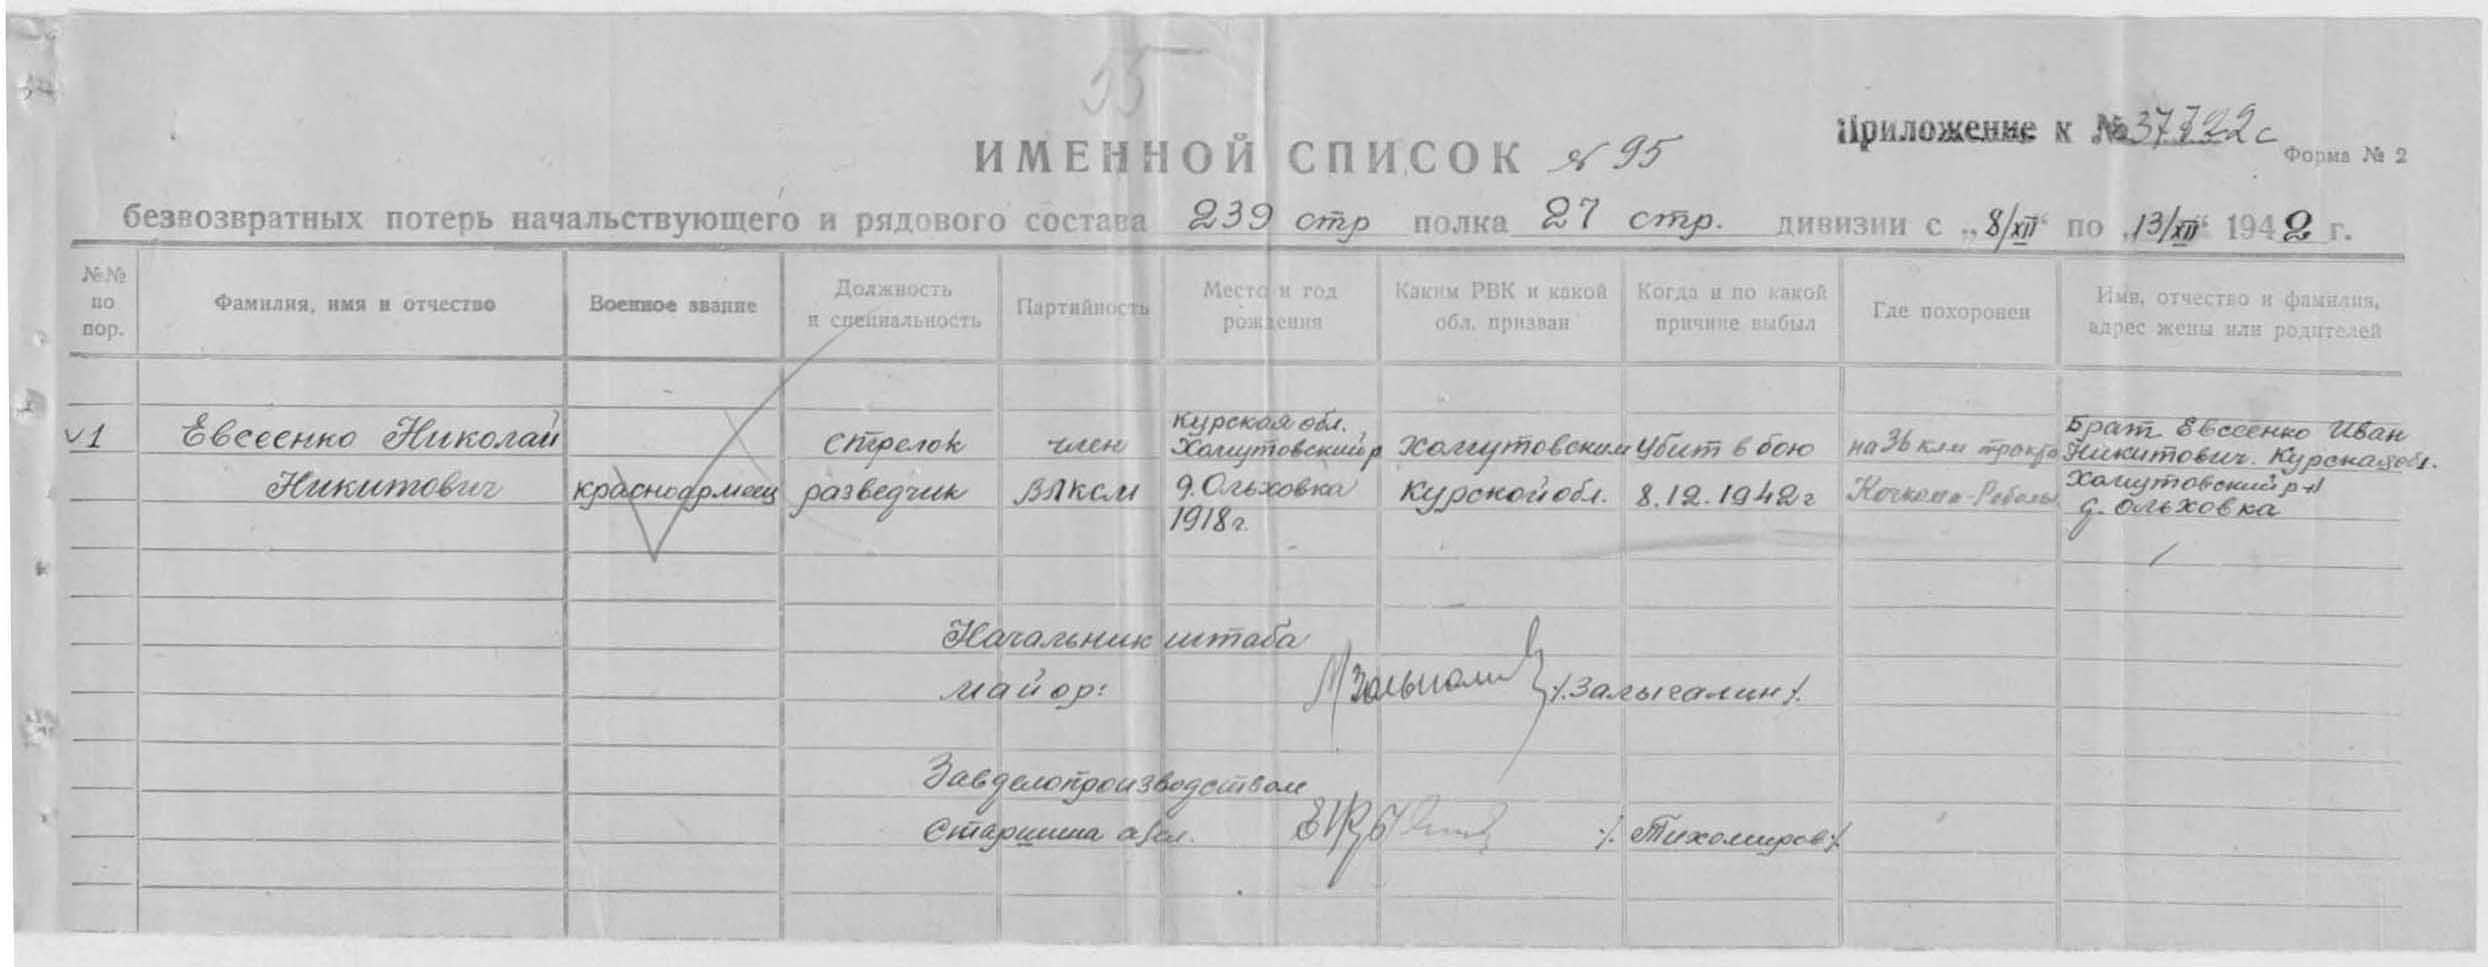 55
Приложение к № 37722с
Форма № 2
ИМЕННОЙ СПИСОК № 95
безвозвратных потерь начальствующего и рядового состава 239 стр полка 27 стр. дивизии с „8/XII“ по „13/XII“ 1942 г.
№№ по пор.
Фамилия, имя и отчество
Военное звание
Должность и специальность
Партийность
Место и год рождения
Каким РВК и какой обл. призван
Когда и по какой причине выбыл
Где похоронен
Имя, отчество и фамилия, адрес жены или родителей
v1
Евсеенко Николай
Никитович
красноармеец
стрелок
разведчик
член
ВЛКСМ
Курская обл.
Хомутовский р
д. Ольховка
1918 г.
Хомутовским
Курской обл.
Убит в бою
8.12.1942 г
на 36 клм тракта
Кочкома-Реболы
Брат Евсеенко Иван
Никитович. Курская обл.
Хомутовский р-н
д. Ольховка
Начальник штаба
майор:
/. Залыгалин /.
Завделопроизводством
Старшина
/. Тихомиров /.